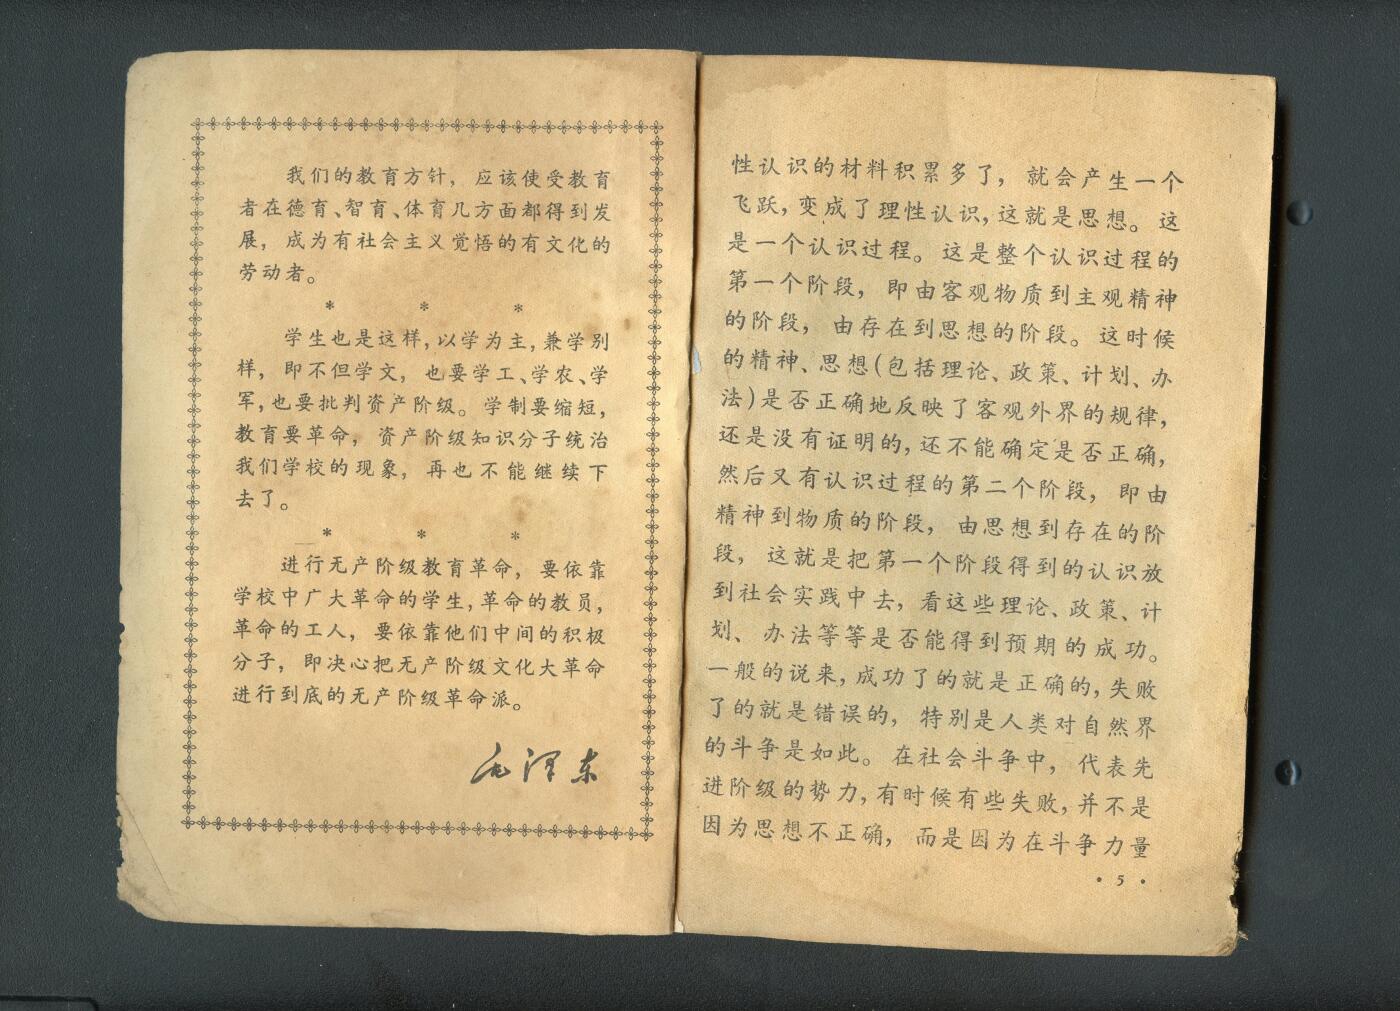 我们的教育方针，应该使受教育
者在德育、智育、体育几方面都得到发
展，成为有社会主义觉悟的有文化的
劳动者。
* * *
学生也是这样，以学为主，兼学别
样，即不但学文，也要学工、学农、学
军，也要批判资产阶级。学制要缩短，
教育要革命，资产阶级知识分子统治
我们学校的现象，再也不能继续下
去了。
* * *
进行无产阶级教育革命，要依靠
学校中广大革命的学生，革命的教员，
革命的工人，要依靠他们中间的积极
分子，即决心把无产阶级文化大革命
进行到底的无产阶级革命派。
毛泽东
性认识的材料积累多了，就会产生一个
飞跃，变成了理性认识，这就是思想。这
是一个认识过程。这是整个认识过程的
第一个阶段，即由客观物质到主观精神
的阶段，由存在到思想的阶段。这时候
的精神、思想(包括理论、政策、计划、办
法)是否正确地反映了客观外界的规律，
还是没有证明的，还不能确定是否正确，
然后又有认识过程的第二个阶段，即由
精神到物质的阶段，由思想到存在的阶
段，这就是把第一个阶段得到的认识放
到社会实践中去，看这些理论、政策、计
划、办法等等是否能得到预期的成功。
一般的说来，成功了的就是正确的，失败
了的就是错误的，特别是人类对自然界
的斗争是如此。在社会斗争中，代表先
进阶级的势力，有时候有些失败，并不是
因为思想不正确，而是因为在斗争力量
• 5 •